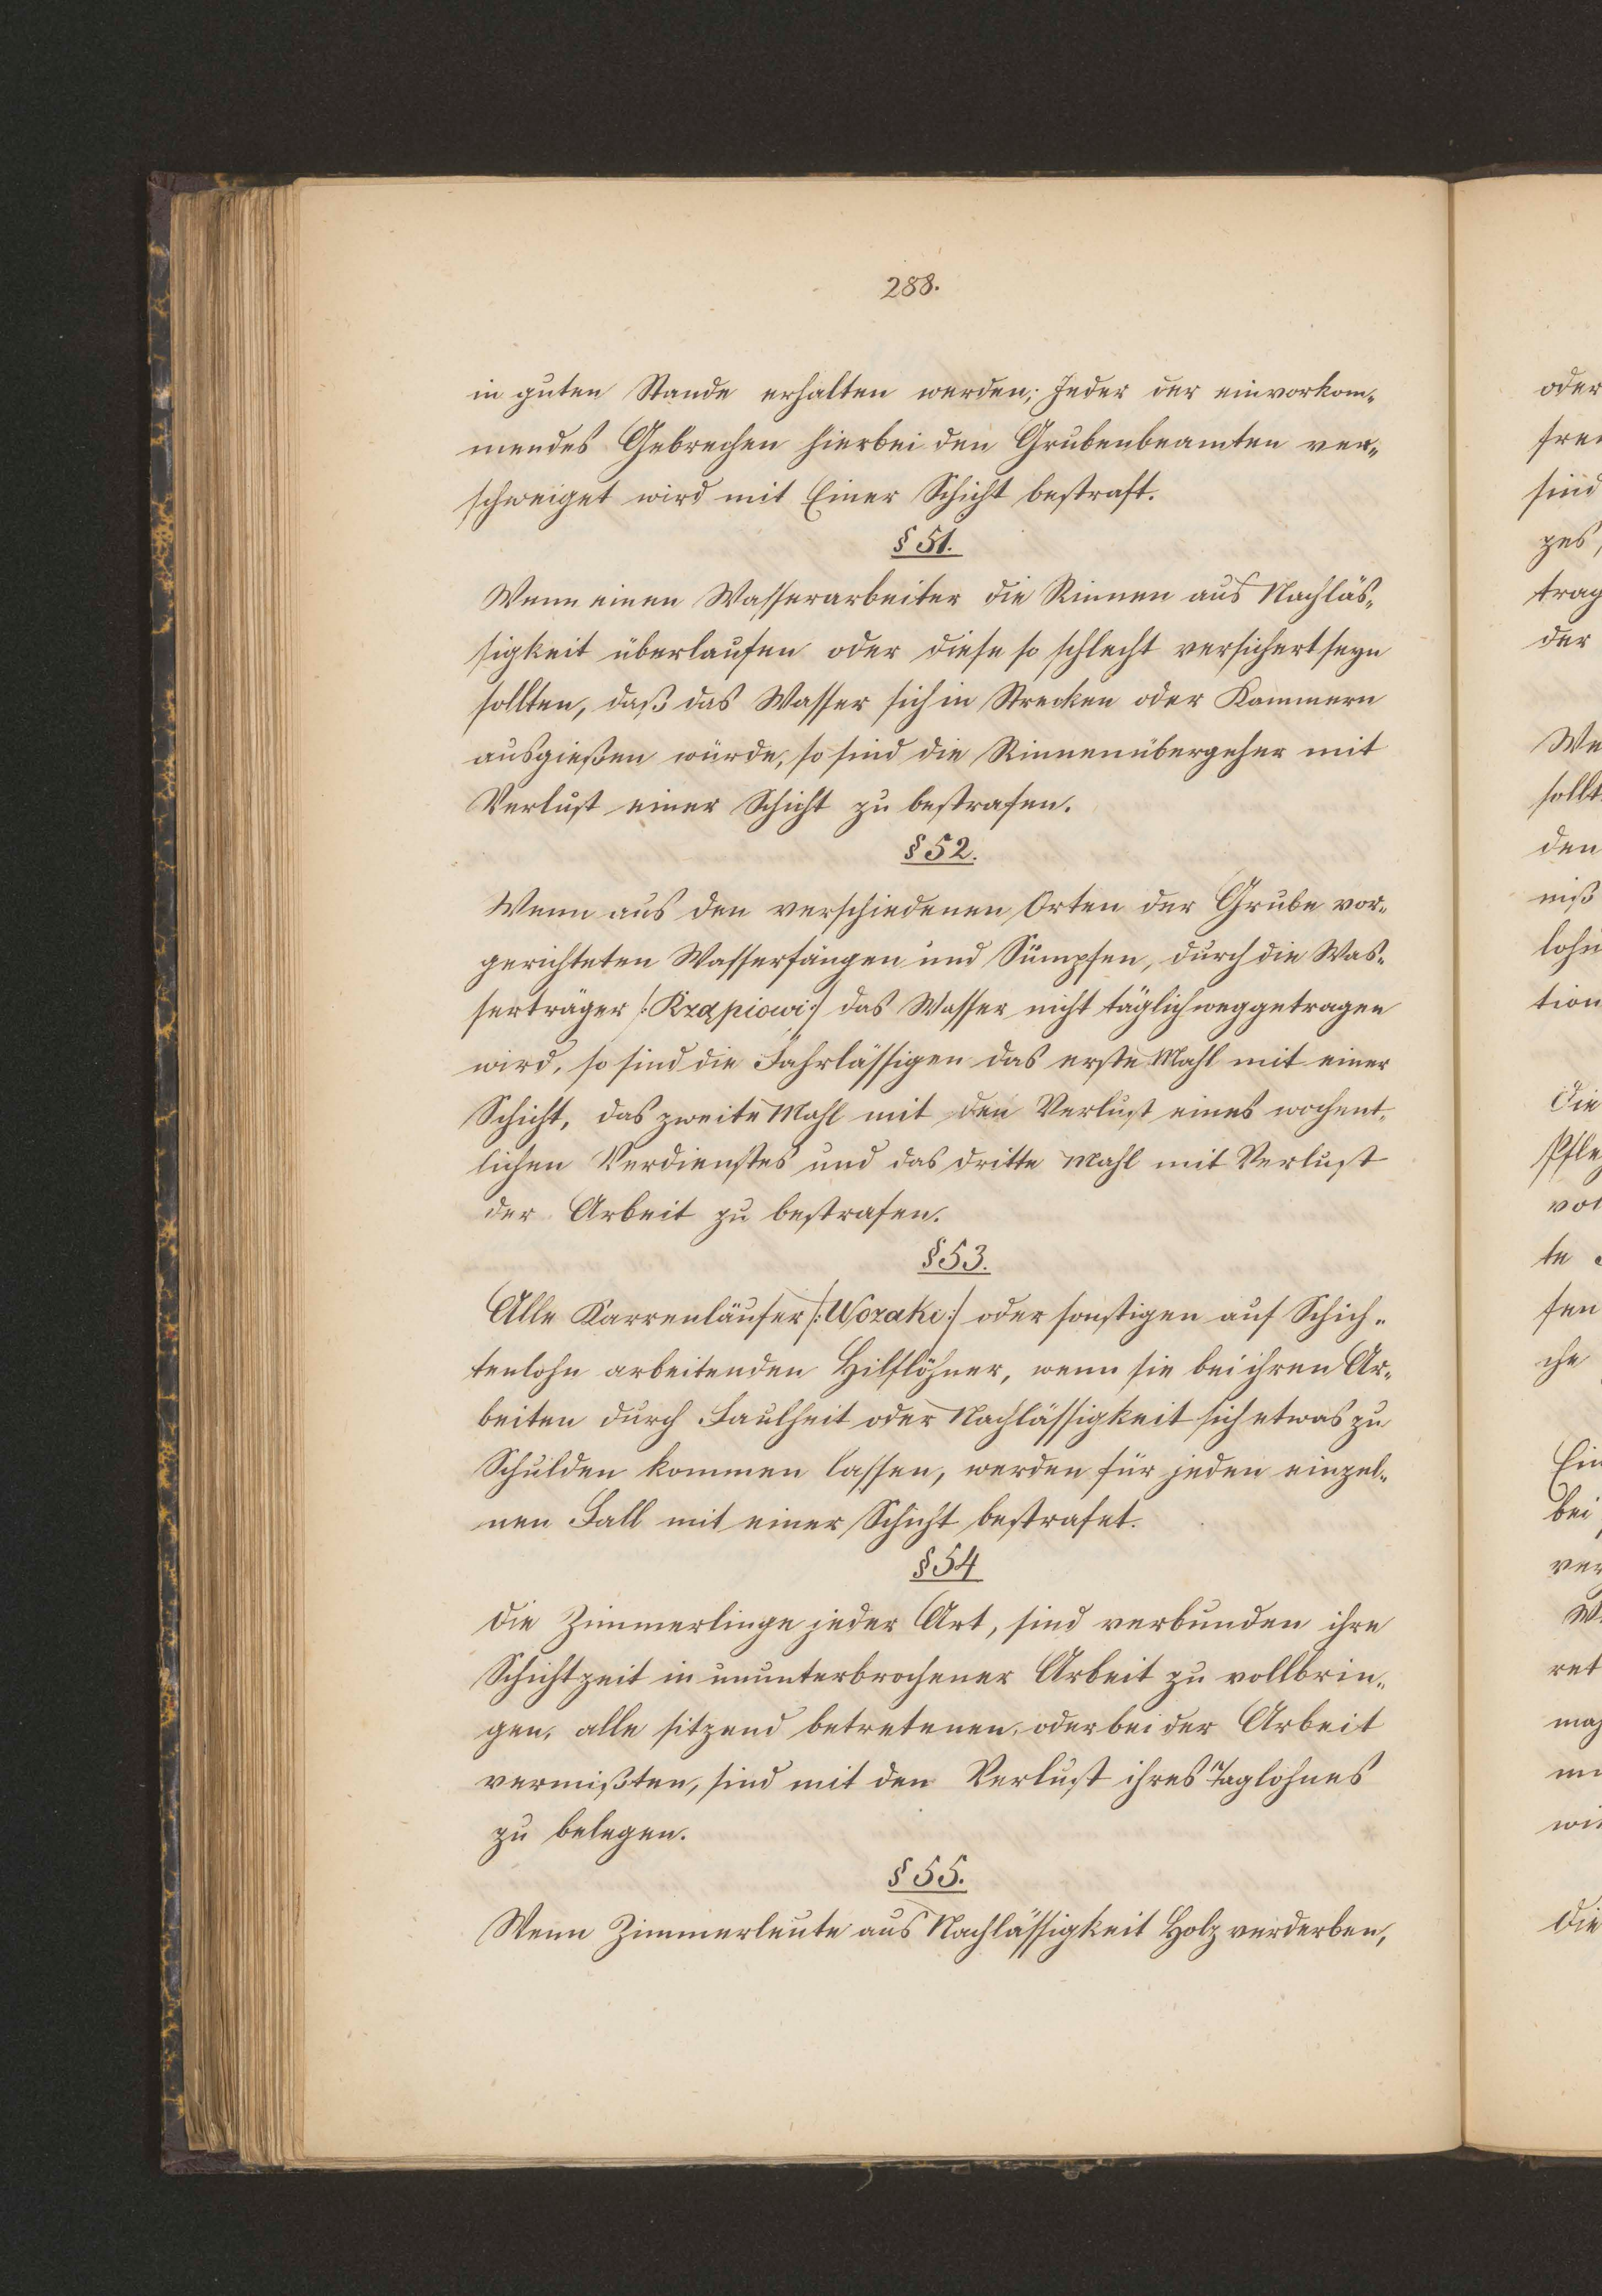 288.
in guten Stande erhalten werden; Jeder der ein vorkom-
mendes Gebrechen hierbei den Grubenbeamten ver-
schweiget wird mit Einer Schicht bestraft.
§ 51.
Wenn einen Wasserarbeiter die Rinnen aus Nachläs-
sigkeit überlaufen oder diese so schlecht versichert seyn
sollten, daß das Wasser sich in Strecken oder Kammern
ausgießen würde, so sind die Rinnenübergeher mit
Verlust einer Schicht zu bestrafen.
§ 52.
Wenn aus den verschiedenen Orten der Grube vor-
gerichteten Wasserfängen und Sümpfen, durch die Was-
serträger /: Krząpiowi :/ das Wasser nicht täglich weggetragen
wird, so sind die Fahrlässigen das erste Mahl mit einer
Schicht, das zweite Mahl mit den Verlust eines wochent-
lichen Verdienstes und das dritte Mahl mit Verlust
der Arbeit zu bestrafen.
§ 53.
Alle Karrenläufer /: Wozaki :/ oder sonstigen auf Schich-
tenlohn arbeitenden Hilflöhner, wenn sie bei ihren Ar-
beiten durch Faulheit oder Nachlässigkeit sich etwas zu
Schulden kommen lassen, werden für jeden einzel-
nen Fall mit einer Schicht bestrafet.
§ 54
Die Zimmerlinge jeder Art, sind verbunden ihre
Schichtzeit in ununterbrochener Arbeit zu vollbrin-
gen, alle sitzend betretenen, oder bei der Arbeit
vermißten, sind mit den Verlust ihres Taglohnes
zu belegen.
§ 55.
Wenn Zimmerleute aus Nachlässigkeit Holz verderben,
oder
sind
trag
der
sollt
den
niß
lohn
tion
Die
te
fen
che
bei
ret
Die